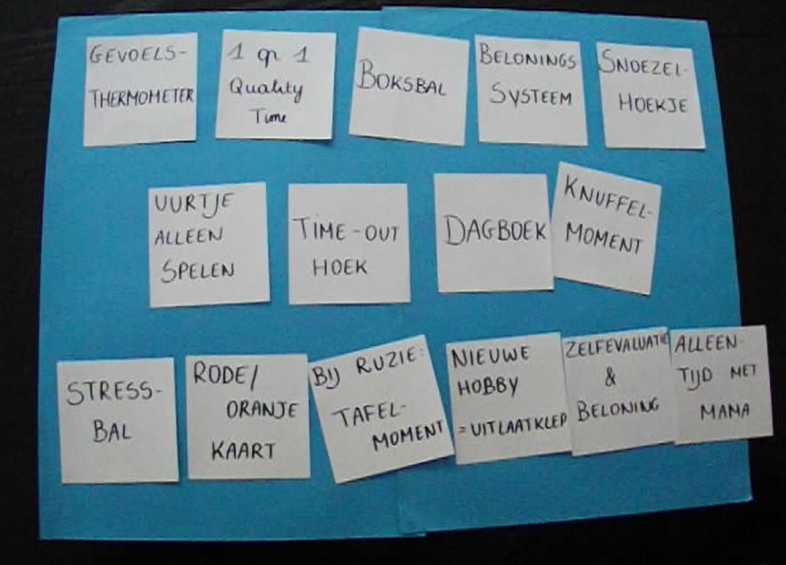 GEVOELS-
THERMOMETER
1 op 1
Quality
Time
BOKSBAL
BELONINGS
SYSTEEM
SNOEZEL-
HOEKJE
UURTJE
ALLEEN
SPELEN
TIME-OUT
HOEK
DAGBOEK
KNUFFEL-
MOMENT
STRESS-
BAL
RODE/
ORANJE
KAART
BIJ RUZIE:
TAFEL-
MOMENT
NIEUWE
HOBBY
=UITLAATKLEP
ZELFEVALUATIE
&
BELONING
ALLEEN-
TIJD MET
MAMA